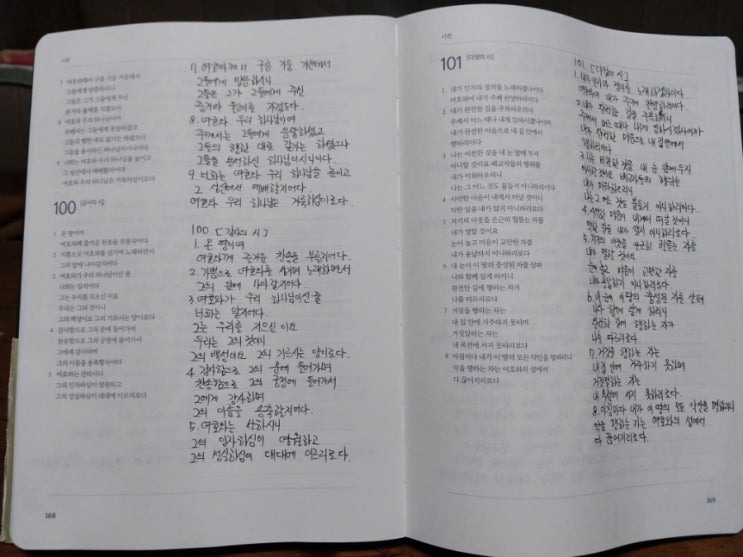 시편
7 여호와께서 구름 기둥 가운데서
그들에게 말씀하시니
그들은 그가 그들에게 주신
증거와 율례를 지켰도다
8 여호와 우리 하나님이여
주께서는 그들에게 응답하셨고
그들의 행한 대로 갚기는 하셨으나
그들을 용서하신 하나님이시니이다
9 너희는 여호와 우리 하나님을 높이고
그 성산에서 예배할지어다
여호와 우리 하나님은 거룩하심이로다
100 [감사의 시]
1 온 땅이여
여호와께 즐거운 찬송을 부를지어다
2 기쁨으로 여호와를 섬기며 노래하면서
그의 앞에 나아갈지어다
3 여호와가 우리 하나님이신 줄
너희는 알지어다
그는 우리를 지으신 이요
우리는 그의 것이니
그의 백성이요 그의 기르시는 양이로다
4 감사함으로 그의 문에 들어가며
찬송함으로 그의 궁정에 들어가서
그에게 감사하며
그의 이름을 송축할지어다
5 여호와는 선하시니
그의 인자하심이 영원하고
그의 성실하심이 대대에 이르리로다
7. 여호와께서 구름 기둥 가운데서
그들에게 말씀하시니
그들은 그가 그들에게 주신
증거와 율례를 지켰도다.
8. 여호와 우리 하나님이여
주께서는 그들에게 응답하셨고
그들의 행한 대로 갚기는 하셨으나
그들을 용서하신 하나님이시니이다.
9. 너희는 여호와 우리 하나님을 높이고
그 성산에서 예배할지어다.
여호와 우리 하나님은 거룩하심이로다.
100. [감사의 시]
1. 온 땅이여
여호와께 즐거운 찬송을 부를지어다.
2. 기쁨으로 여호와를 섬기며 노래하면서
그의 앞에 나아갈지어다.
3. 여호와가 우리 하나님이신 줄
너희는 알지어다.
그는 우리를 지으신 이요
우리는 그의 것이니
그의 백성이요 그의 기르시는 양이로다.
4. 감사함으로 그의 문에 들어가며
찬송함으로 그의 궁정에 들어가서
그에게 감사하며
그의 이름을 송축할지어다.
5. 여호와는 선하시니
그의 인자하심이 영원하고
그의 성실하심이 대대에 이르리로다.
168
시편
101 [다윗의 시]
1 내가 인자와 정의를 노래하겠나이다
여호와여 내가 주께 찬양하리이다
2 내가 완전한 길을 주목하오리니
주께서 어느 때나 내게 임하시겠나이까
내가 완전한 마음으로 내 집 안에서
행하리이다
3 나는 비천한 것을 내 눈 앞에 두지
아니할 것이요 배교자들의 행위를
내가 미워하오리니
나는 그 어느 것도 붙들지 아니하리이다
4 사악한 마음이 내게서 떠날 것이니
악한 일을 내가 알지 아니하리로다
5 자기의 이웃을 은근히 헐뜯는 자를
내가 멸할 것이요
눈이 높고 마음이 교만한 자를
내가 용납하지 아니하리로다
6 내 눈이 이 땅의 충성된 자를 살펴
나와 함께 살게 하리니
완전한 길에 행하는 자가
나를 따르리로다
7 거짓을 행하는 자는
내 집 안에 거주하지 못하며
거짓말하는 자는
내 목전에 서지 못하리로다
8 아침마다 내가 이 땅의 모든 악인을 멸하리니
악을 행하는 자는 여호와의 성에서
다 끊어지리로다
101. [다윗의 시]
1. 내가 인자와 정의를 노래하겠나이다.
여호와여 내가 주께 찬양하리이다.
2. 내가 완전한 길을 주목하오리니
주께서 어느 때나 내게 임하시겠나이까
내가 완전한 마음으로 내 집안에서
행하리이다.
3. 나는 비천한 것을 내 눈 앞에 두지
아니할 것이요 배교자들의 행위를
내가 미워하오리니
나는 그 어느 것도 붙들지 아니하리이다.
4. 사악한 마음이 내게서 떠날 것이니
악한 일을 내가 알지 아니하리로다.
5. 자기의 이웃을 은근히 헐뜯는 자를
내가 멸할 것이요
눈이 높고 마음이 교만한 자를
내가 용납하지 아니하리로다.
6. 내 눈이 이 땅의 충성된 자를 살펴
나와 함께 살게 하리니
완전한 길에 행하는 자가
나를 따르리로다.
7. 거짓을 행하는 자는
내 집 안에 거주하지 못하며
거짓말하는 자는
내 목전에 서지 못하리로다.
8. 아침마다 내가 이 땅의 모든 악인을 멸하리니
악을 행하는 자는 여호와의 성에서
다 끊어지리로다.
169